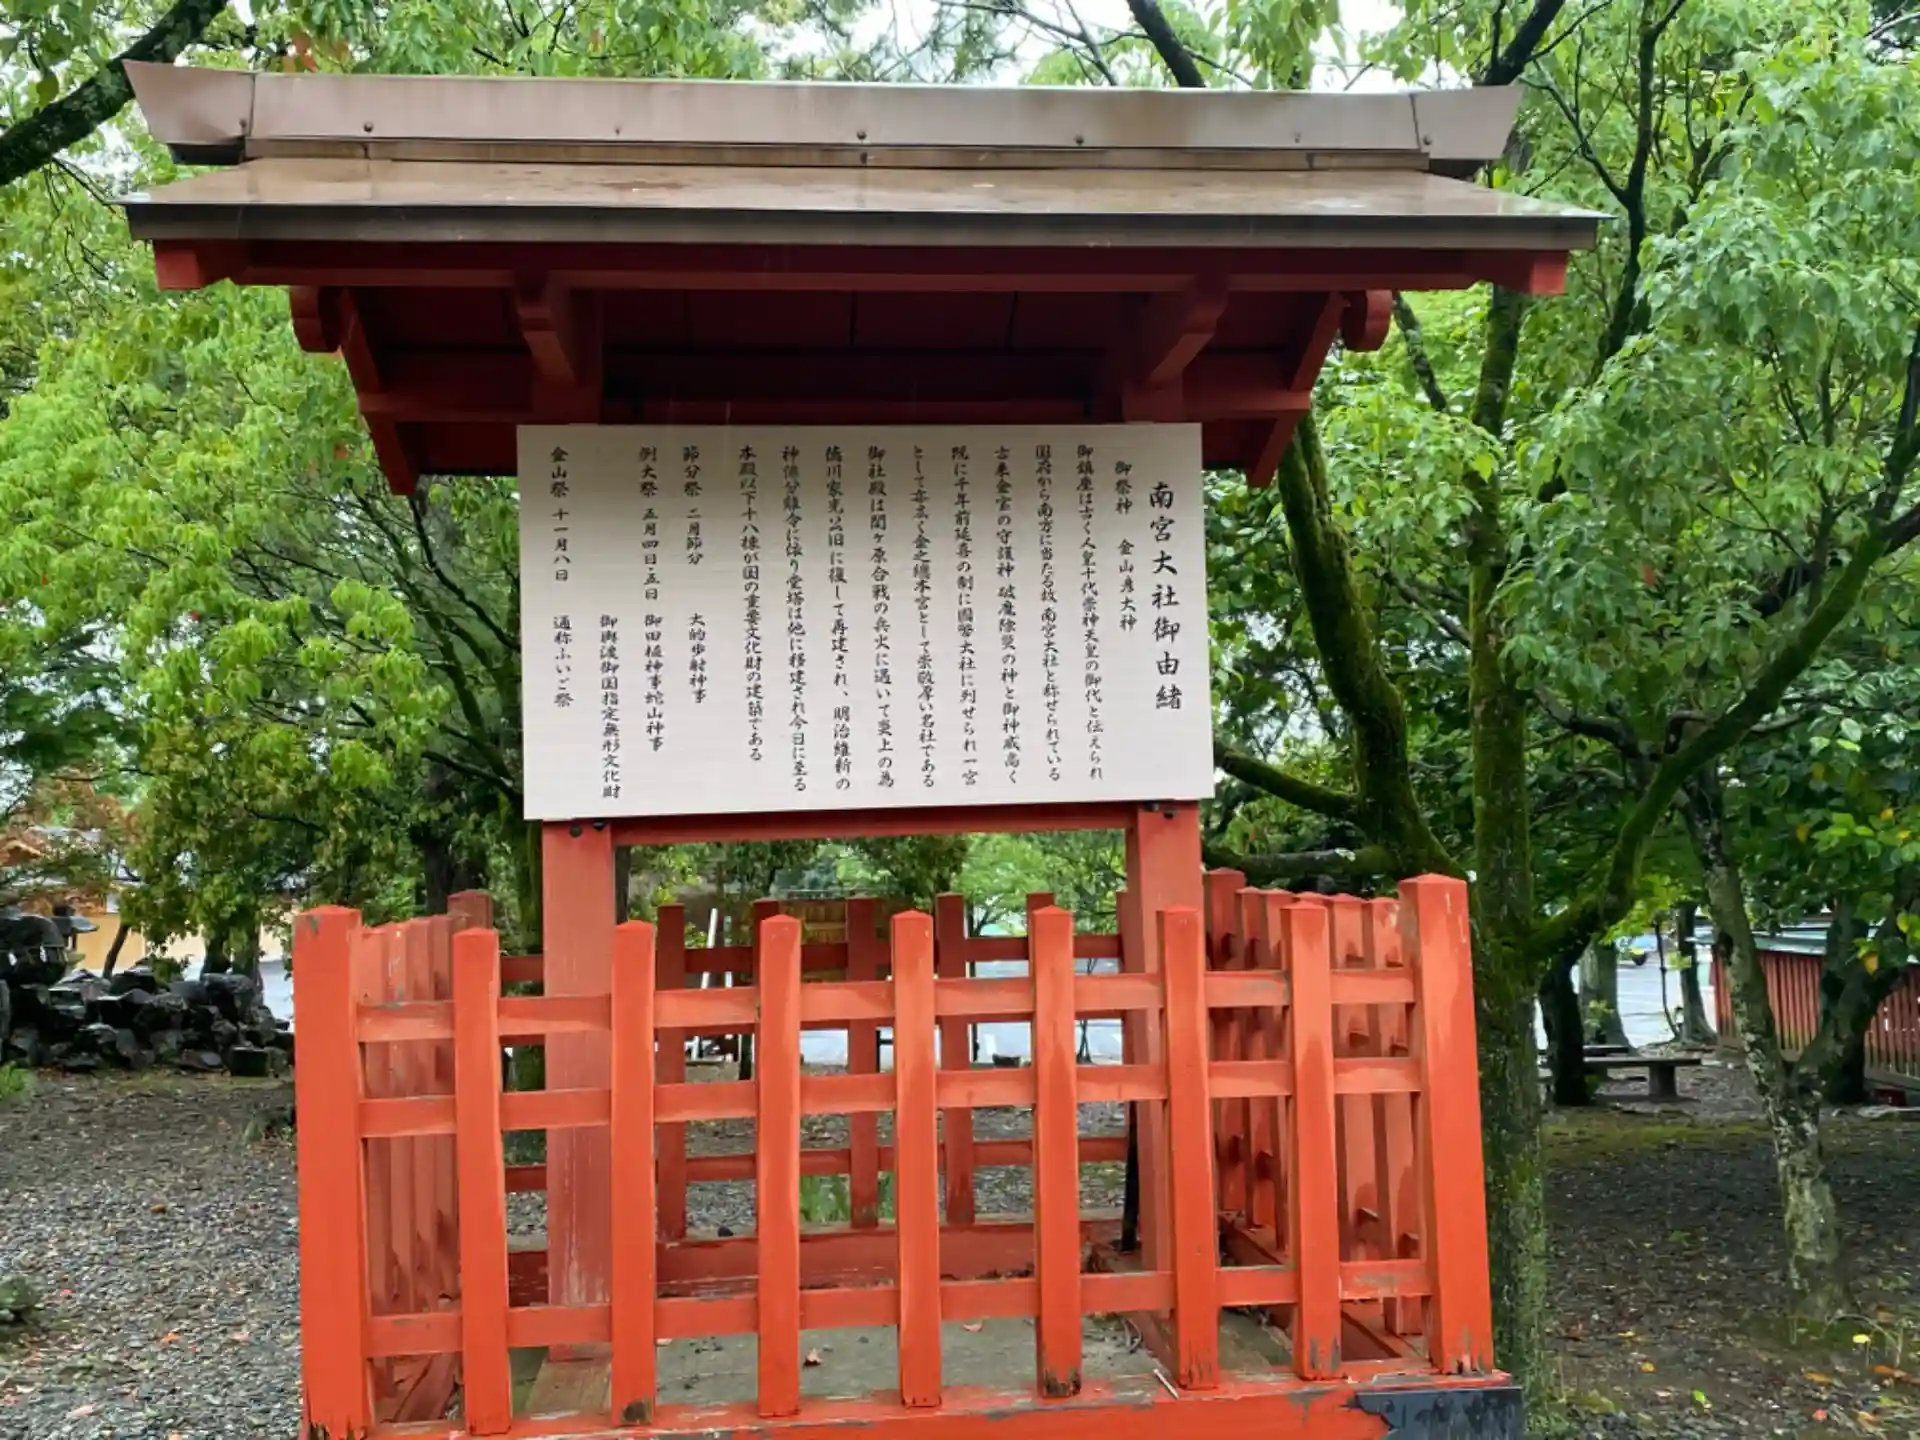 南宮大社御由緒
御祭神 金山彦大神
御鎮座は古く人皇十代崇神天皇の御代と伝えられ
国府から南方に当たる故 南宮大社と称せられている
古来金宝の守護神 破魔除災の神と御神威高く
既に千年前延喜の制に國幣大社に列せられ一宮
として亦あまねく金之總本宮として崇敬厚い名社である
御社殿は関ヶ原合戦の兵火に遇いて炎上の為
德川家光公旧に復して再建され、明治維新の
神佛分離令に依り堂塔は他に移建され今日に至る
本殿以下十八棟が国の重要文化財の建築である
節分祭 二月節分 大的歩射神事
例大祭 五月四日・五日 御田植神事蛇山神事
御輿渡御国指定無形文化財
金山祭 十一月八日 通称ふいご祭